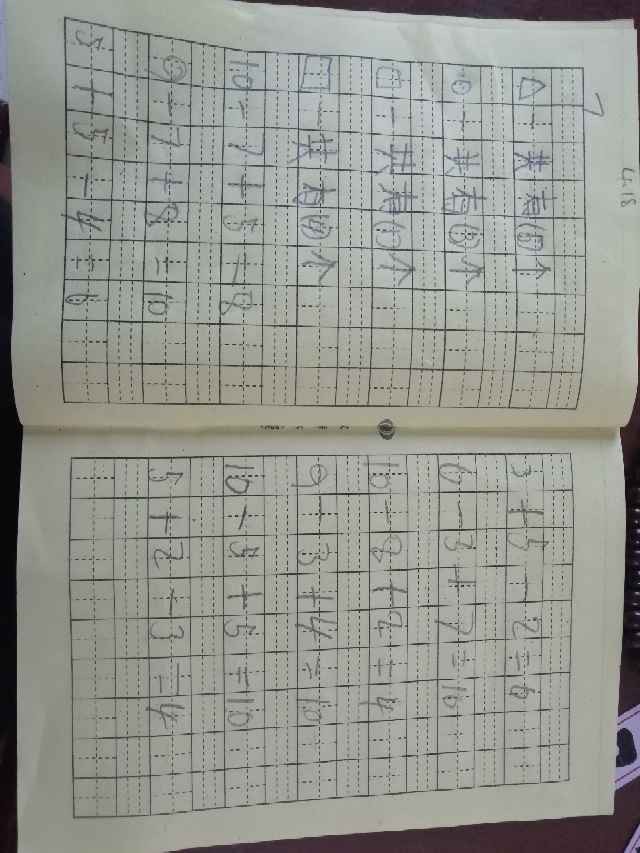 4.18
7
△一共有(5)个
⊙一共有(6)个
10-7+5=8
9-7+8=10
5+5-4=6
3+5-2=6
6-3+7=10
10-8+2=4
9-3+4=10
10-5+5=10
5+2-3=4